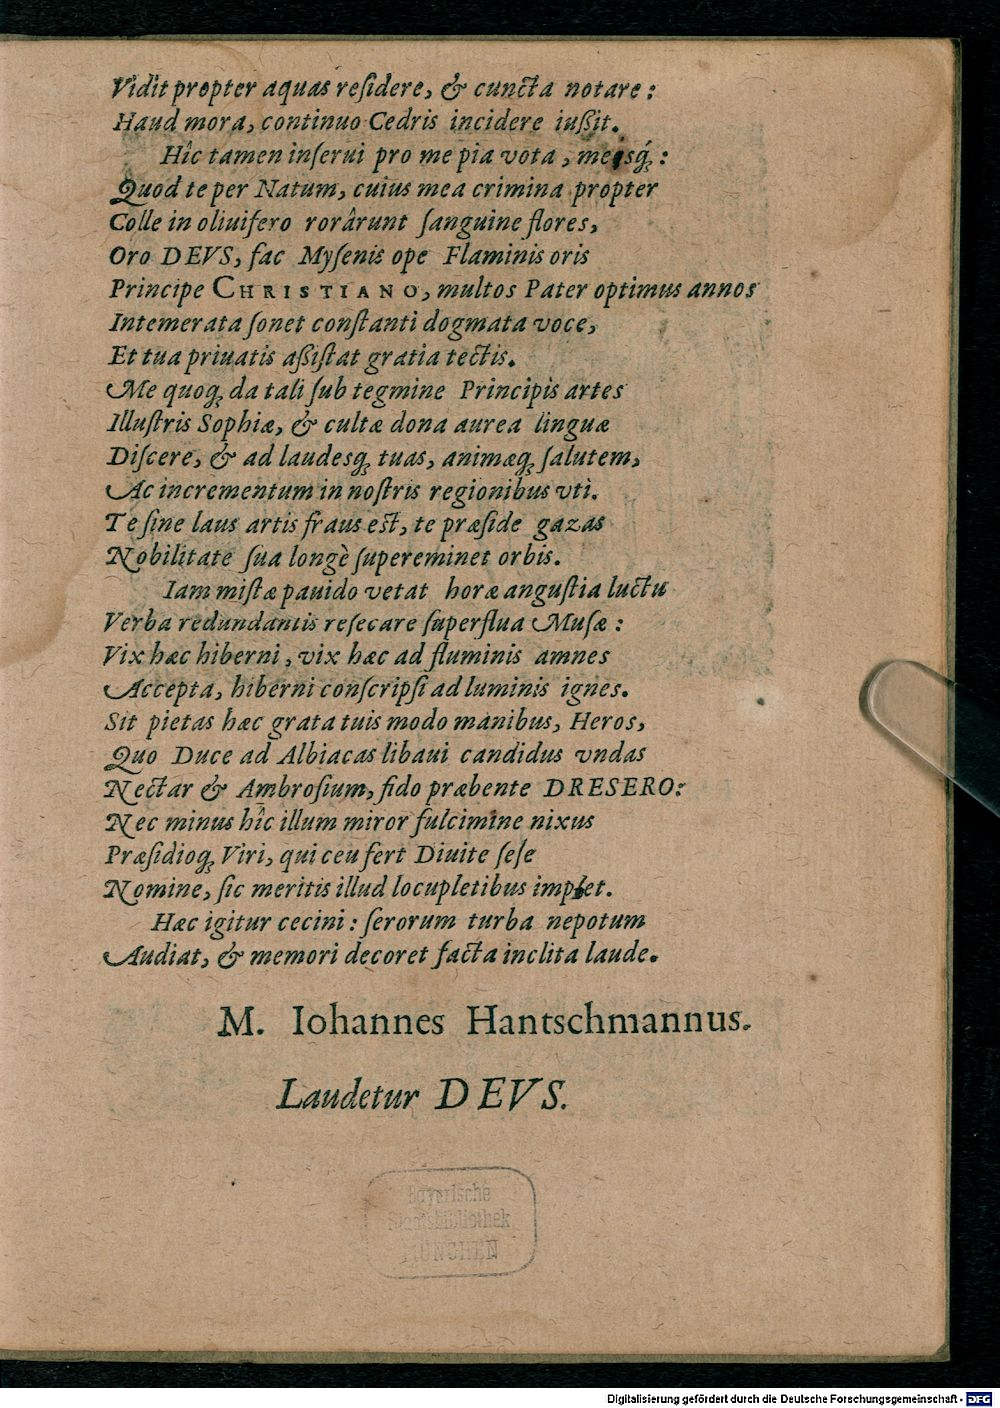 Vidit propter aquas reſidere, & cuncta notare:
Haud mora, continuo Cedris incidere iußit.
Hîc tamen inſerui pro me pia vota, meisq́;:
Quod te per Natum, cuius mea crimina propter
Colle in oliuifero rorârunt ſanguine flores,
Oro DEVS, fac Myſenis ope Flaminis oris
Principe CHRISTIANO, multos Pater optimus annos
Intemerata ſonet conſtanti dogmata voce,
Et tua priuatis aßiſtat gratia tectis.
Me quoq; da tali ſub tegmine Principis artes
Illuſtris Sophiæ, & cultæ dona aurea linguæ
Diſcere, & ad laudesq; tuas, animæq; ſalutem,
Ac incrementum in noſtris regionibus vti.
Te ſine laus artis fraus eſt, te præſide gazas
Nobilitate ſua longè ſupereminet orbis.
Iam miſtæ pauido vetat horæ anguſtia luctu
Verba redundantis reſecare ſuperflua Muſæ:
Vix hæc hiberni, vix hæc ad fluminis amnes
Accepta, hiberni conſcripſi ad luminis ignes.
Sit pietas hæc grata tuis modo manibus, Heros,
Quo Duce ad Albiacas libaui candidus vndas
Nectar & Ambroſium, fido præbente DRESERO:
Nec minus hîc illum miror fulcimine nixus
Præſidioq; Viri, qui ceu fert Diuite ſeſe
Nomine, ſic meritis illud locupletibus implet.
Hæc igitur cecini: ſerorum turba nepotum
Audiat, & memori decoret facta inclita laude.
M. Iohannes Hantschmannus.
Laudetur DEVS.
Bayerische
Staatsbibliothek
MÜNCHEN
Digitalisierung gefördert durch die Deutsche Forschungsgemeinschaft - DFG